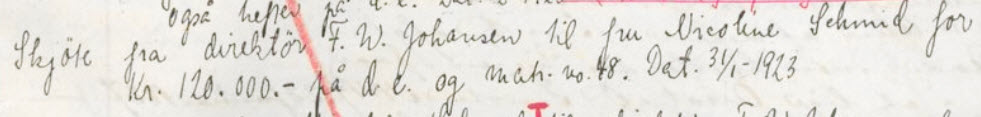 også hefter på d. e.
Skjöte fra direktör F. W. Johansen til fru Nicoline Schmid for
Kr. 120.000.- på d. e. og matr. no. 48. Dat. 31/1-1923